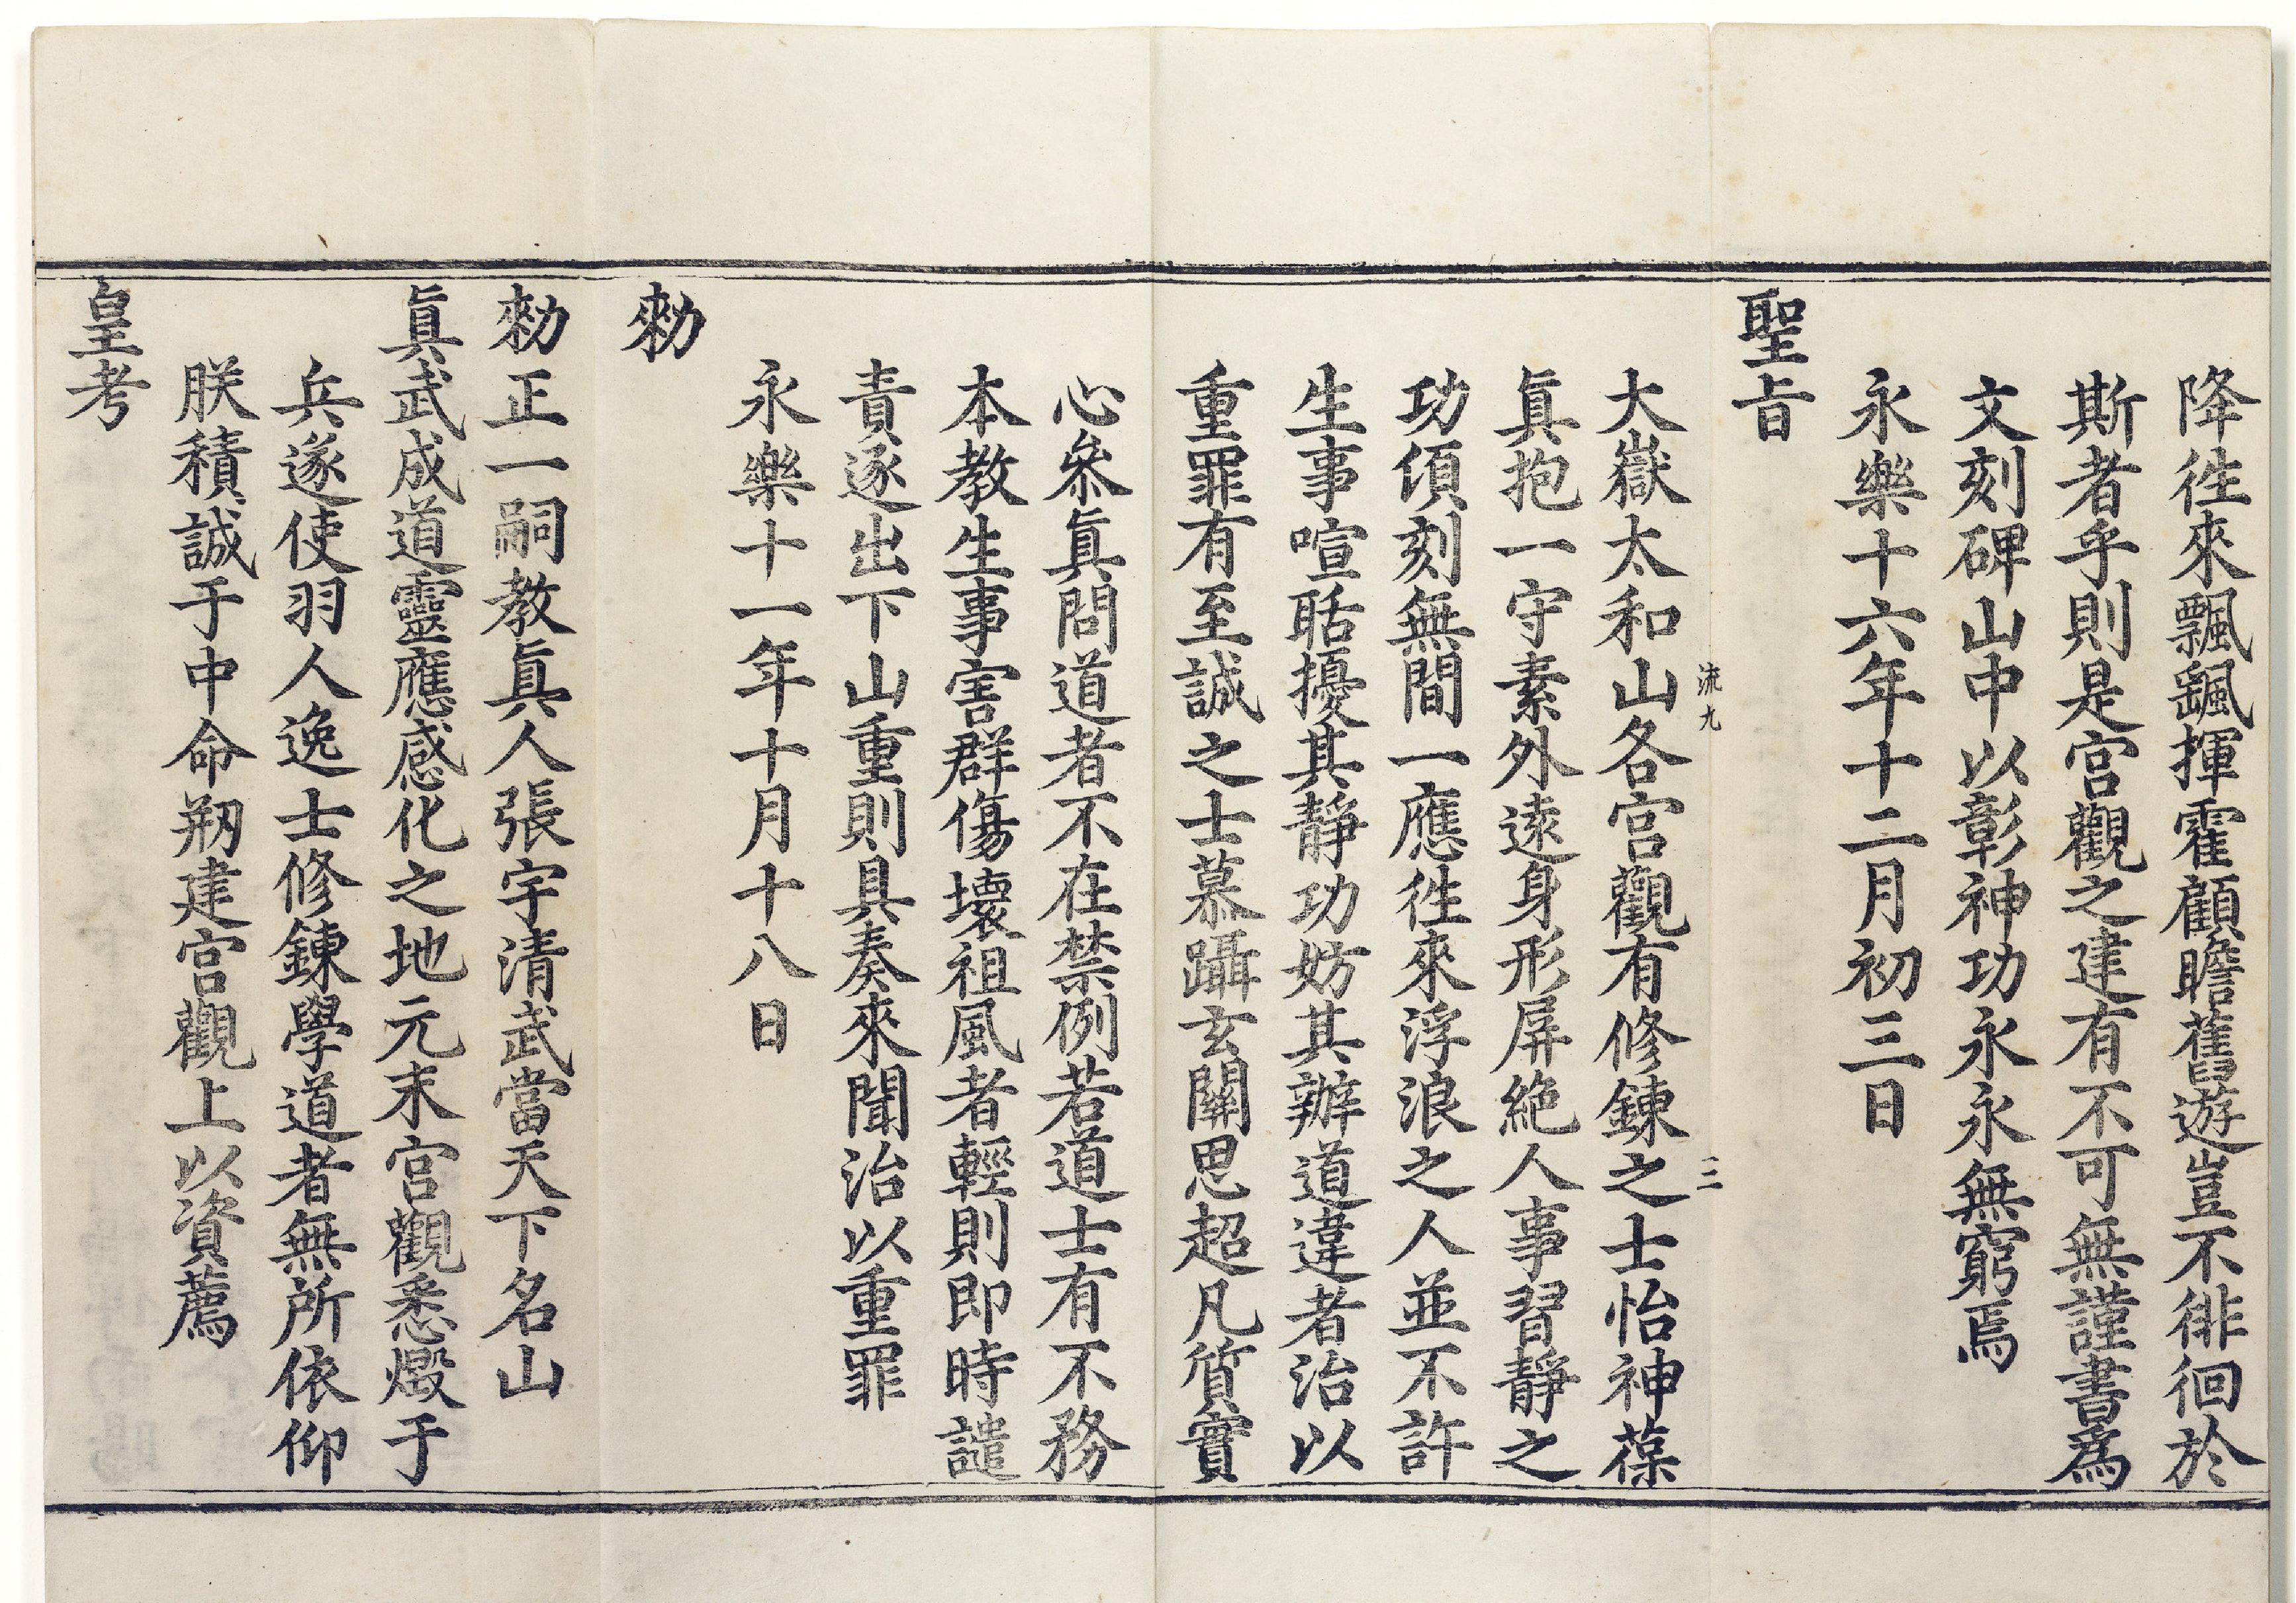 降徃來飄颻揮霍顧瞻舊遊豈不徘徊於
斯者乎則是宫觀之建有不可無謹書為
文刻碑山中以彰神功永永無窮焉
永樂十六年十二月初三日
聖旨
流九 二
大嶽太和山各宫觀有修鍊之士怡神葆
眞抱一守素外逺身形屏絶人事習靜之
功傾刻無間一應徃來浮浪之人並不許
生事喧聒擾其靜功妨其辦道違者治以
重罪有至誠之士慕躡玄關思超凡質實
心叅眞問道者不在禁例若道士有不務
本教生事害群傷壞祖風者輕則即時譴
責逐出下山重則具奏來聞治以重罪
永樂十一年十月十八日
勑
勑正一嗣教眞人張宇清武當天下名山
眞武成道靈應感化之地元末宫觀悉燬于
兵遂使羽人逸士修鍊學道者無所依仰
朕積誠于中命剏建宫觀上以資薦
皇考